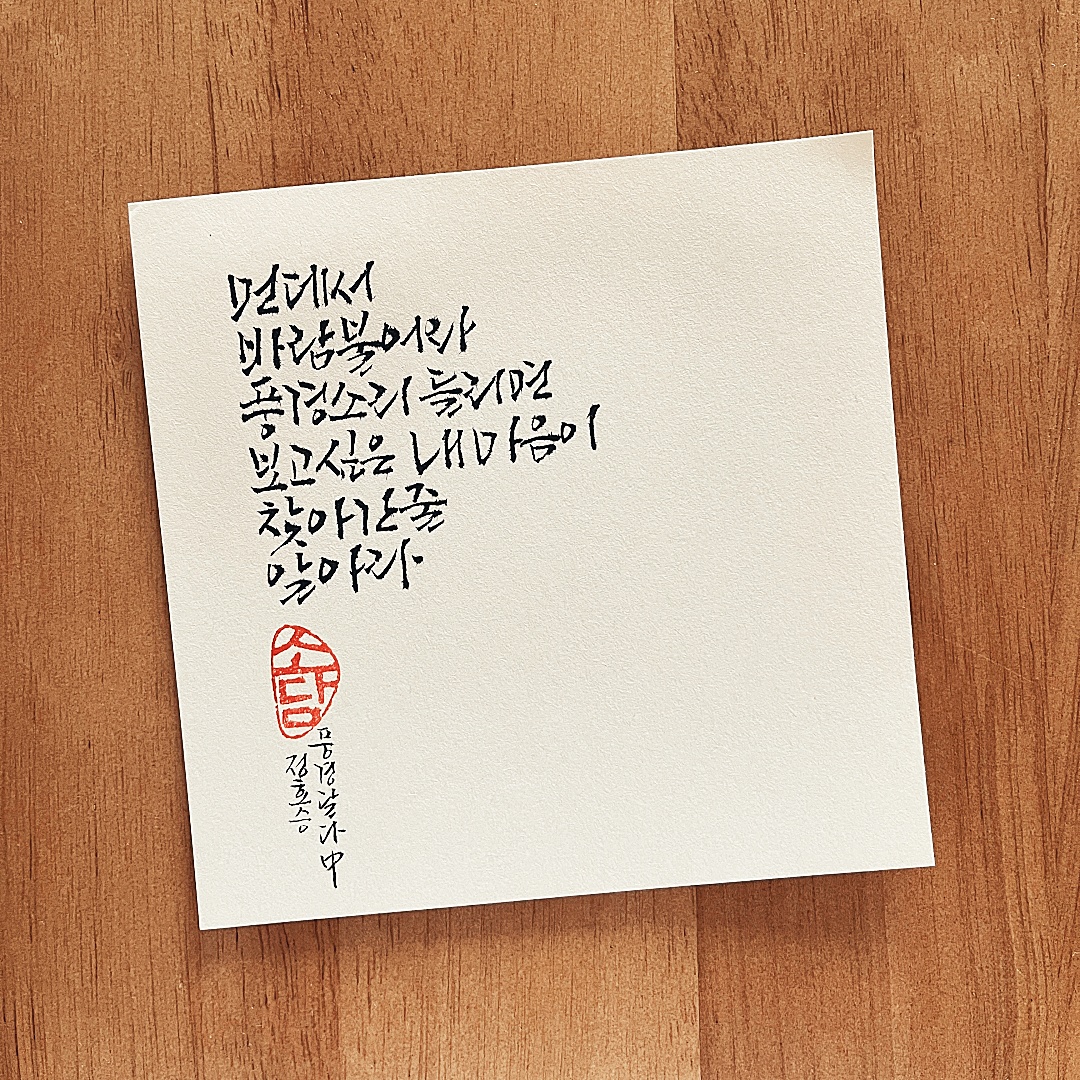 먼데서
바람불어와
풍경소리 들리면
보고싶은 내 마음이
찾아간줄
알아라.
소담
풍경달다 中
정호승